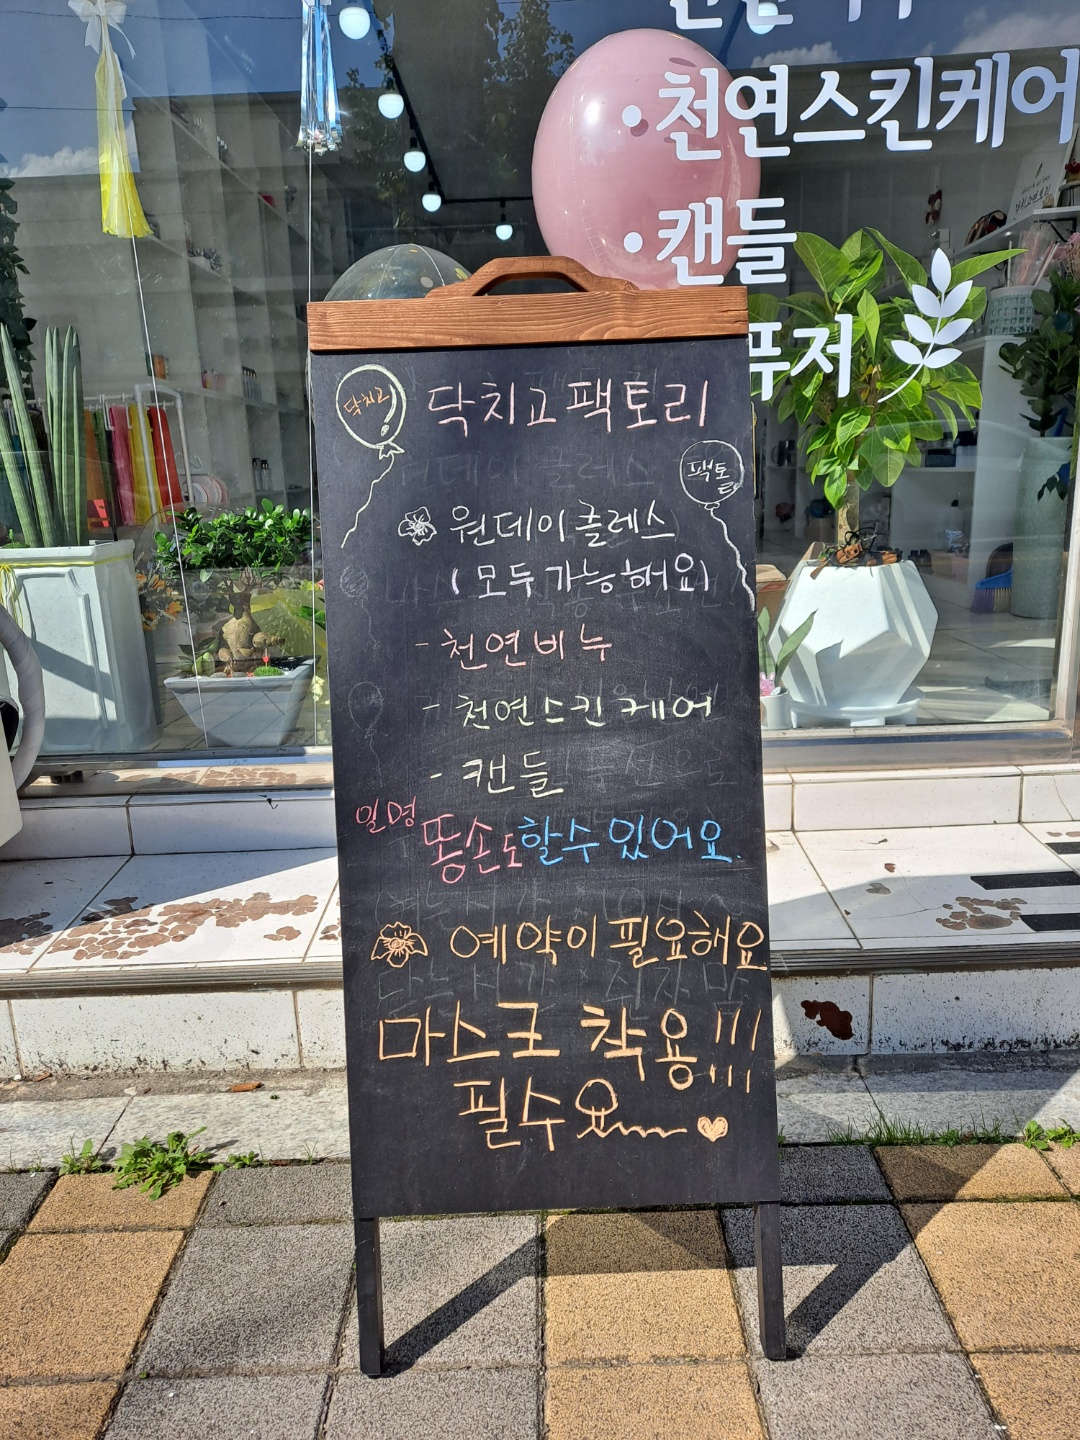 · 천연스킨케어
· 캔들
푸저
닥치고
닥치고 팩토리
팩토리
원데이 클레스
(모두 가능해요)
- 천연비누
- 천연스킨케어
- 캔들
일명 똥손도 할수 있어요.
예약이 필요해요
마스크 착용!!!
필수요